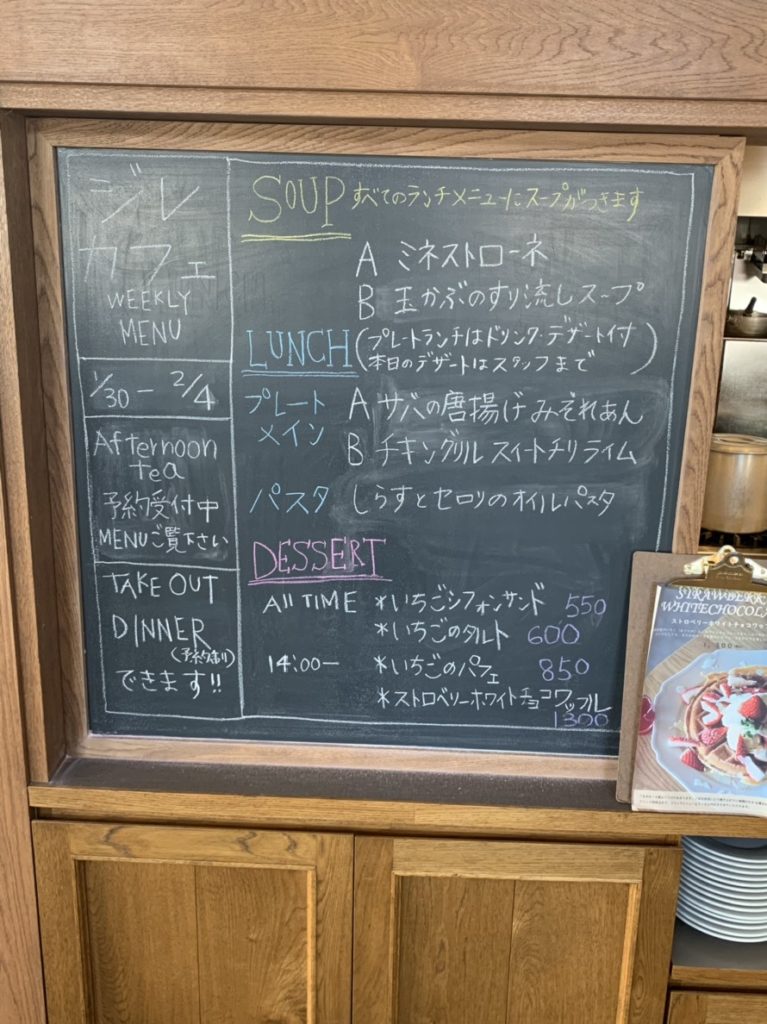 ジレ
カフェ
WEEKLY
MENU
1/30 - 2/4
Afternoon
tea
予約受付中
MENUご覧下さい
TAKE OUT
DINNER
(予約制)
できます!!
SOUP すべてのランチメニューにスープがつきます
A ミネストローネ
B 玉かぶのすり流しスープ
LUNCH (プレートランチはドリンク・デザート付
本日のデザートはスタッフまで)
プレート
メイン
A サバの唐揚げ みぞれあん
B チキングリル スイートチリライム
パスタ しらすとセロリのオイルパスタ
DESSERT
All TIME *いちごシフォンサンド 550
*いちごのタルト 600
14:00- *いちごのパフェ 850
*ストロベリーホワイトチョコワッフル
1300
STRAWBERR
WHITECHOCOLA
ストロベリーホワイトチョコワッ